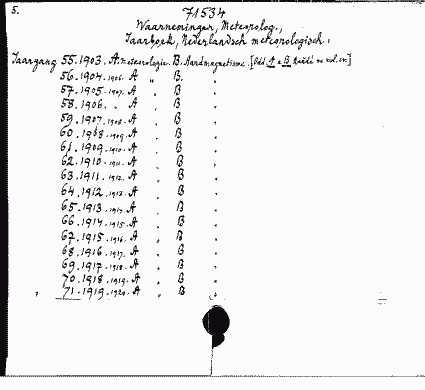 5.
71534
Waarneminger, Meteorolog.,
Jaarboek, Nederlandsch meteorologisch.
Jaargang 55.1903. A. meteorologie. B. Aardmagnetisme. [Odd. A a B každé ve zvl. sv.]
56.1904. 1906. A „ B. „
57.1905. 1907. A „ B „
58.1906. „ A „ B „
59.1907. 1908. A „ B „
60.1908. 1909. A „ B „
61.1909. 1910. A „ B „
62.1910. 1911. A „ B „
63.1911. 1912. A „ B „
64.1912. 1913. A „ B „
65.1913. 1914. A „ B „
66.1914. 1915. A „ B „
67.1915. 1916. A „ B „
68.1916. 1917. A „ B „
69.1917. 1918. A „ B „
70.1918. 1919. A „ B „
71.1919. 1920. A „ B „